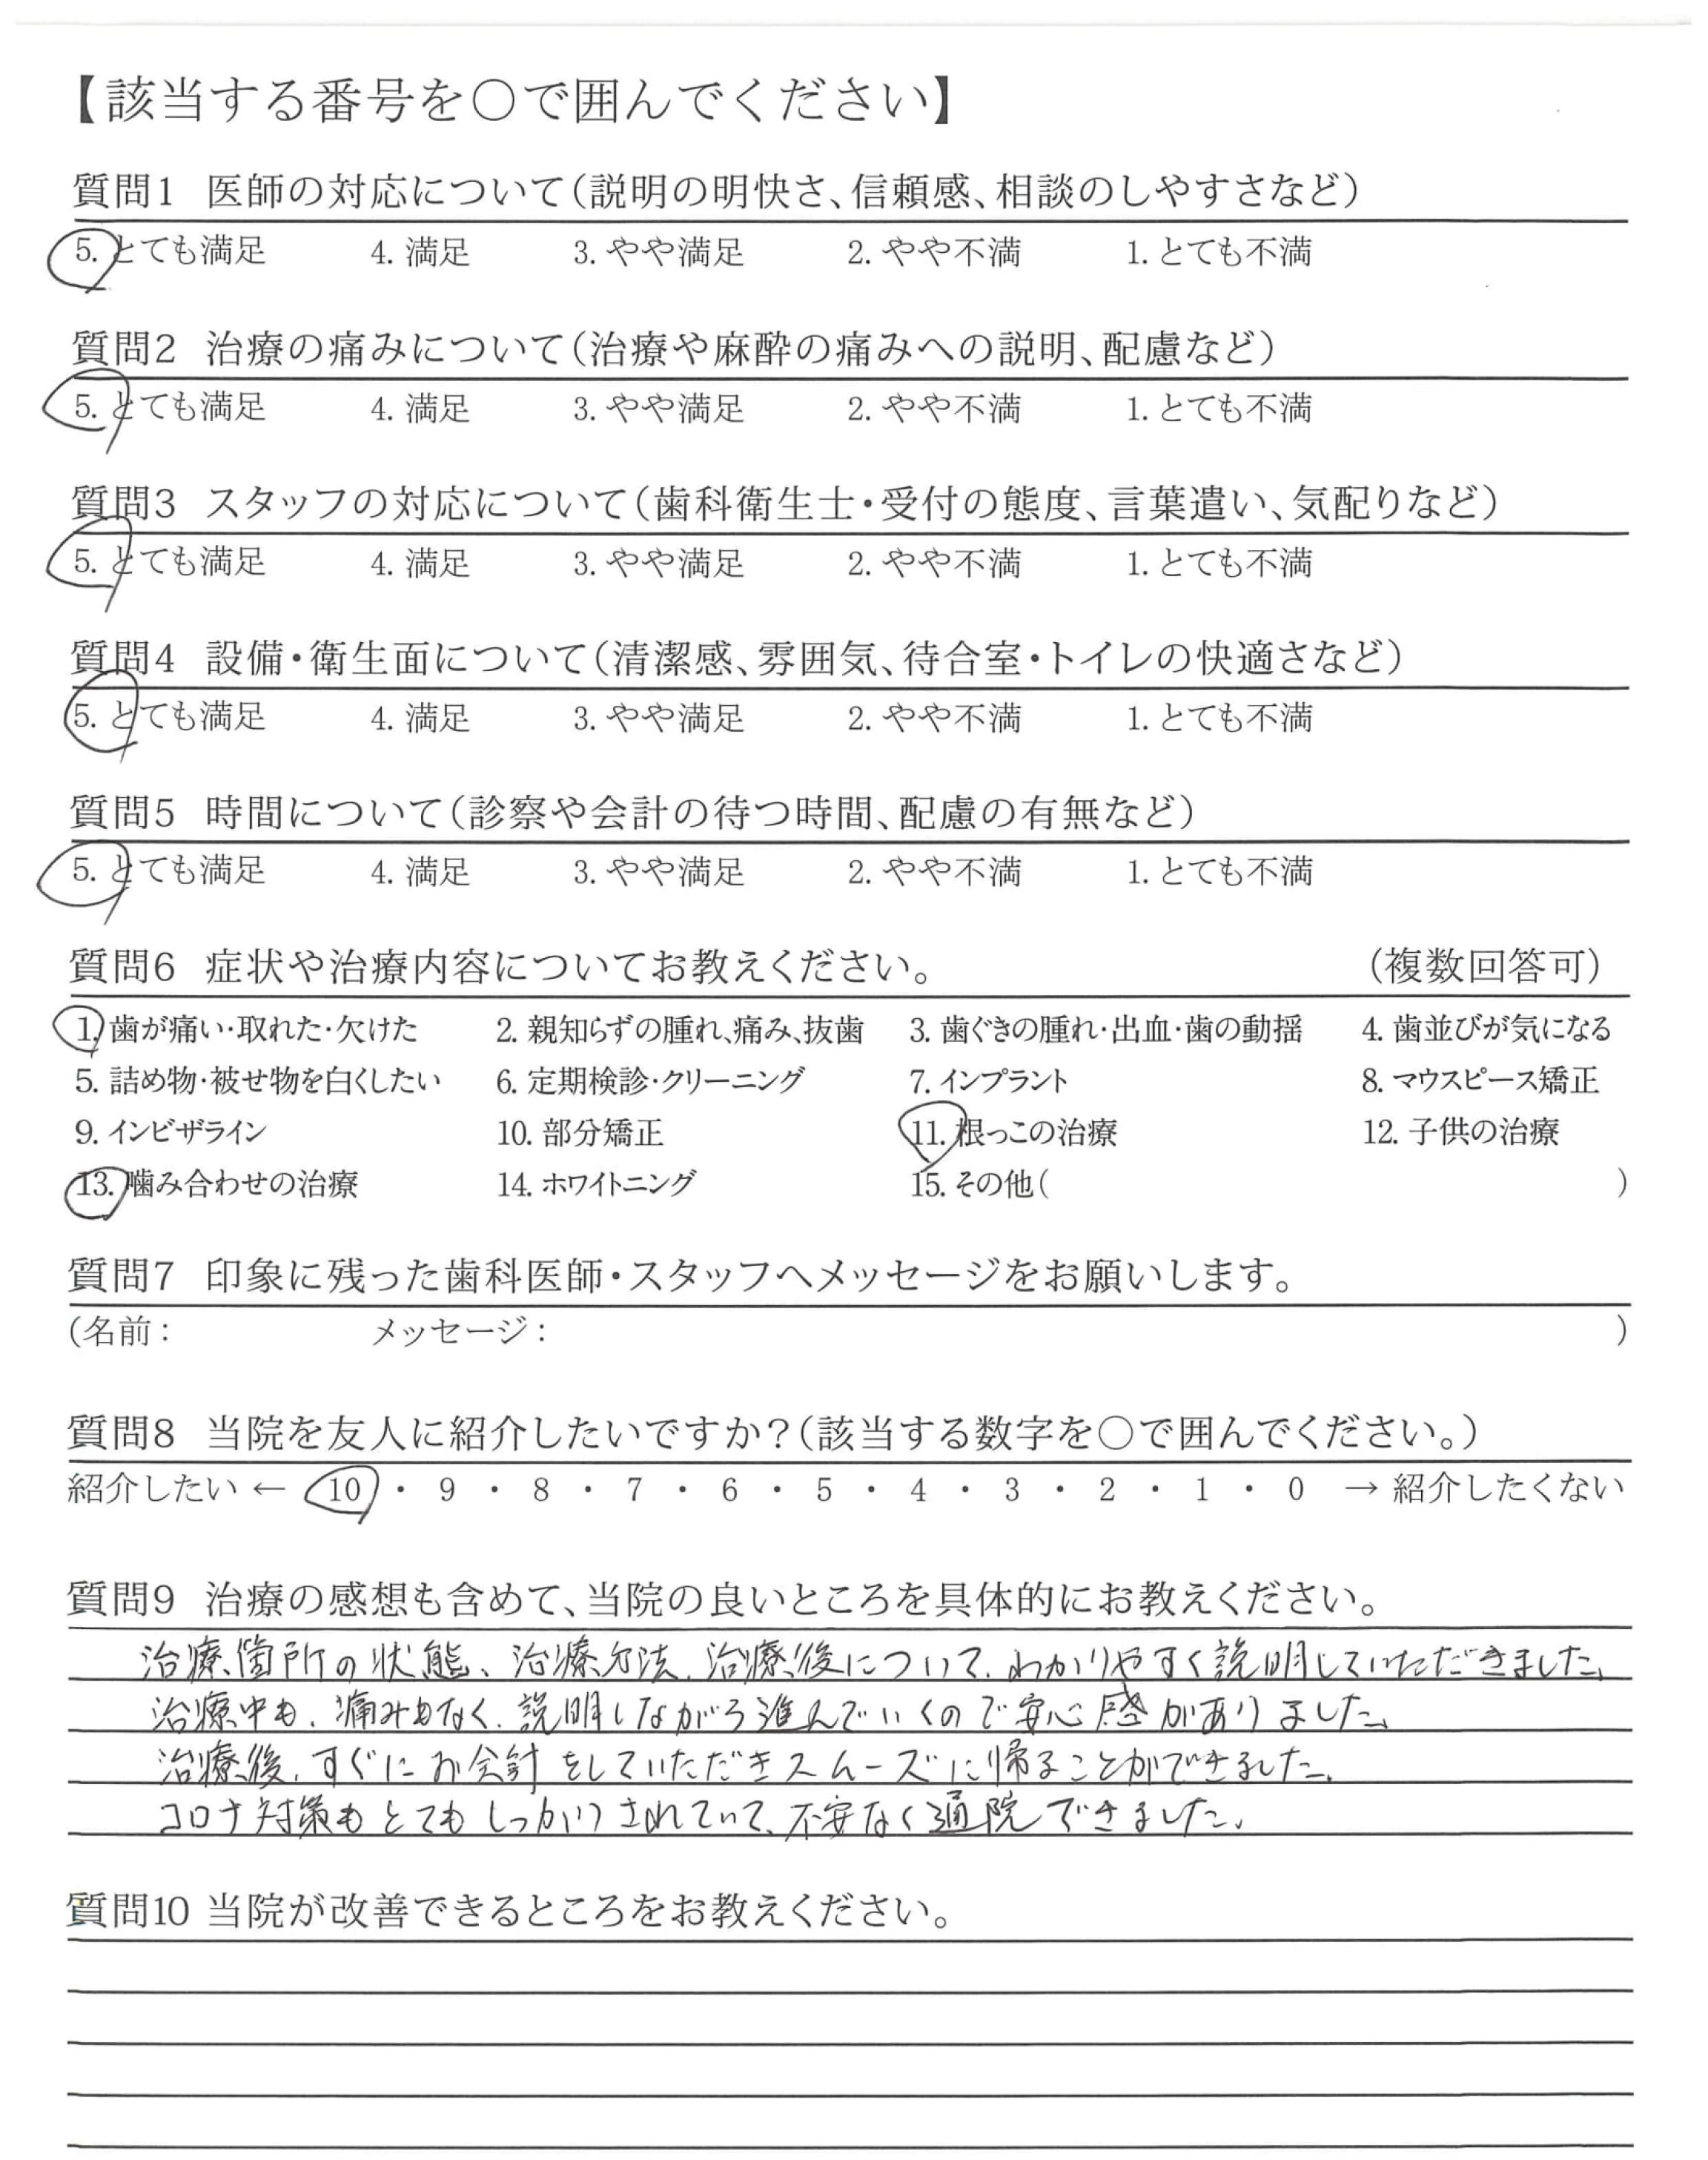 【該当する番号を○で囲んでください】
質問1 医師の対応について(説明の明快さ、信頼感、相談のしやすさなど)
5. とても満足 4. 満足 3. やや満足 2. やや不満 1. とても不満
質問2 治療の痛みについて(治療や麻酔の痛みへの説明、配慮など)
5. とても満足 4. 満足 3. やや満足 2. やや不満 1. とても不満
質問3 スタッフの対応について(歯科衛生士・受付の態度、言葉遣い、気配りなど)
5. とても満足 4. 満足 3. やや満足 2. やや不満 1. とても不満
質問4 設備・衛生面について(清潔感、雰囲気、待合室・トイレの快適さなど)
5. とても満足 4. 満足 3. やや満足 2. やや不満 1. とても不満
質問5 時間について(診察や会計の待つ時間、配慮の有無など)
5. とても満足 4. 満足 3. やや満足 2. やや不満 1. とても不満
質問6 症状や治療内容についてお教えください。 (複数回答可)
1. 歯が痛い・取れた・欠けた 2. 親知らずの腫れ、痛み、抜歯 3. 歯ぐきの腫れ・出血・歯の動揺 4. 歯並びが気になる
5. 詰め物・被せ物を白くしたい 6. 定期検診・クリーニング 7. インプラント 8. マウスピース矯正
9. インビザライン 10. 部分矯正 11. 根っこの治療 12. 子供の治療
13. 噛み合わせの治療 14. ホワイトニング 15. その他( )
質問7 印象に残った歯科医師・スタッフへメッセージをお願いします。
(名前: メッセージ: )
質問8 当院を友人に紹介したいですか?(該当する数字を○で囲んでください。)
紹介したい ← 10 ・ 9 ・ 8 ・ 7 ・ 6 ・ 5 ・ 4 ・ 3 ・ 2 ・ 1 ・ 0 → 紹介したくない
質問9 治療の感想も含めて、当院の良いところを具体的にお教えください。
治療箇所の状態、治療方法、治療後について、わかりやすく説明していただきました。
治療中も、痛みもなく、説明しながら進んでいくので安心感がありました。
治療後、すぐにお会計をしていただきスムーズに帰ることができました。
コロナ対策もとてもしっかりされていて、不安なく通院できました。
質問10 当院が改善できるところをお教えください。